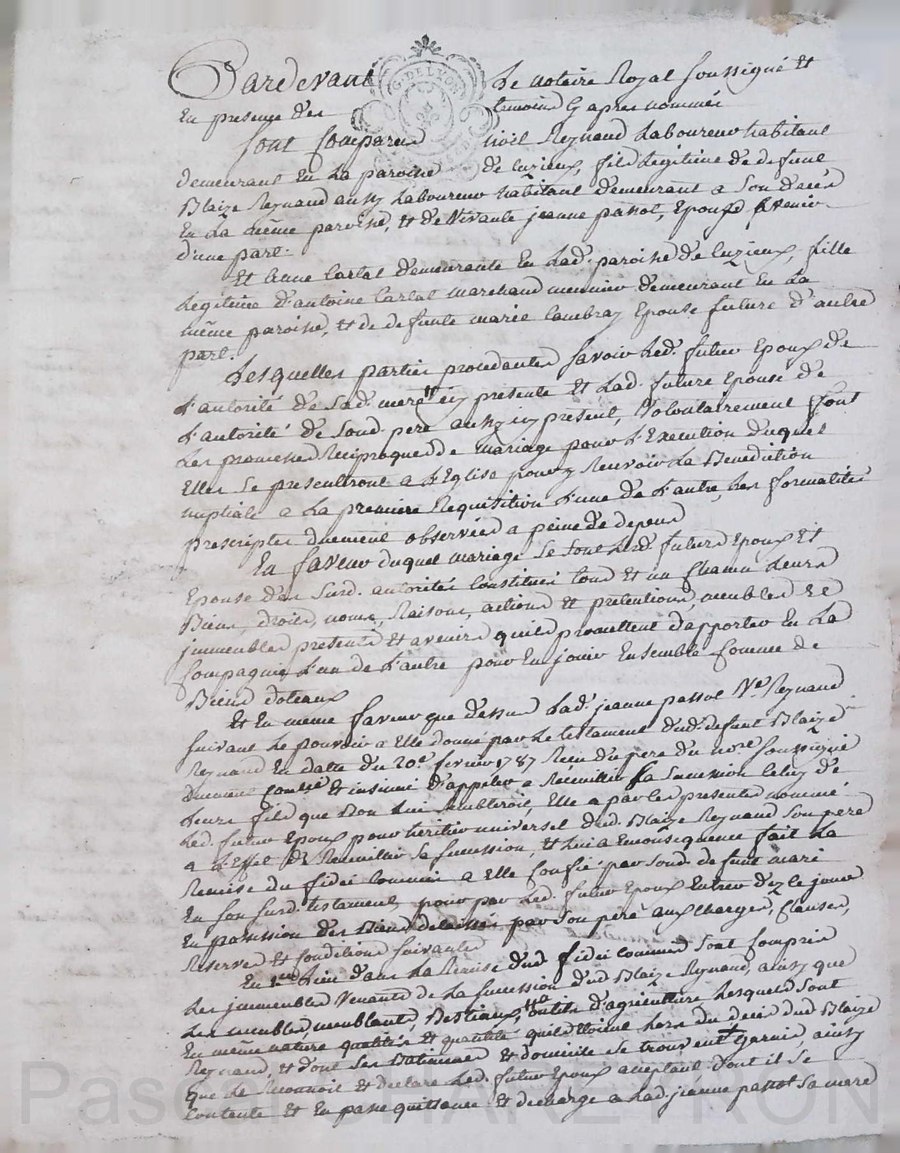 Pardevant Le notaire Royal soussigné et
En presence des temoins cy apres nommés
sont comparus noël Reynaud Laboureur habitant
demeurant En La paroisse de Luzieux, fils Legitime de defunt
Blaize Reynaud aussy Laboureur habitant demeurant a son deces
En La même paroisse, et de vivante jeanne passot, Epoux avenir
d'une part.
Et Anne demeurante En Lad. paroisse de Luzieux, fille
Legitime d'antoine marchand meunier demeurant En La
même paroisse, et de defunte marie Epouse future d'autre
part.
Lesquelles parties procedantes savoir Led. futur Epoux de
L'autorité de sad. mere icy presente et Lad. future Epouse de
L'autorité de sond. pere aussy icy present, volontairement sont
Les promesses Reciproques de mariage pour L'Execution duquel
Elles se presenteront a L'Eglise pour y Recevoir La Benediction
nuptiale a La premiere Requisition L'une de L'autre, Les formalités
prescriptes duement observées a peine de depens
En faveur duquel mariage se sont Led. futurs Epoux Et
Epouse des susd. autorités Constitués tous et un chacun Leurs
Biens, droits, noms, Raisons, actions et pretentions, meubles Et
jmmeubles presents et avenirs qu'ils promettent d'apporter En La
Compagnie L'un de L'autre pour En jouir Ensemble Comme de
Biens dotaux
Et En meme faveur que dessus Lad. jeanne passot Ve. Reynaud
suivant Le pouvoir a Elle donné par Le testament dud. defunt Blaize
Reynaud En datte du 20e. fevrier 1787 Reçu du pere du nore. soussigné
Duement et insinué d'appeler a Recueillir sa succession Celuy de
Leurs fils que Bon Lui sembleroit, Elle a par Les presentes nommé
Led. futur Epoux pour heritier universel dud. Blaize Reynaud son pere
a L'Effet de Recueillir sa succession, et Lui a En Consequence fait La
Remise du fidei Commis a Elle Confié par sond. defunt mari
En son susd. testament, pour par Led. futur Epoux Entrer dez le jour
En possession des Biens delaissés par son pere aux charges, clauses,
Reserves et Conditions suivantes
En 1er Lieu dans La Remise dud. fidei Commis sont Compris
Les jmmeubles venants de La succession dud. Blaize Reynaud, ainsy que
Les meubles meublants, Bestiaux, outils d'agriculture Lesquels sont
En même nature qualités et quantité qu'ils Etoient Lors du deces dud. Blaize
Reynaud, et dont ses Batiments et domicile se trouvent garnis, ainsy
que Le Reconnoit et declare Led. futur Epoux acceptant dont il se
Contente et En passe quittance et decharge a Lad. jeanne passot sa mere